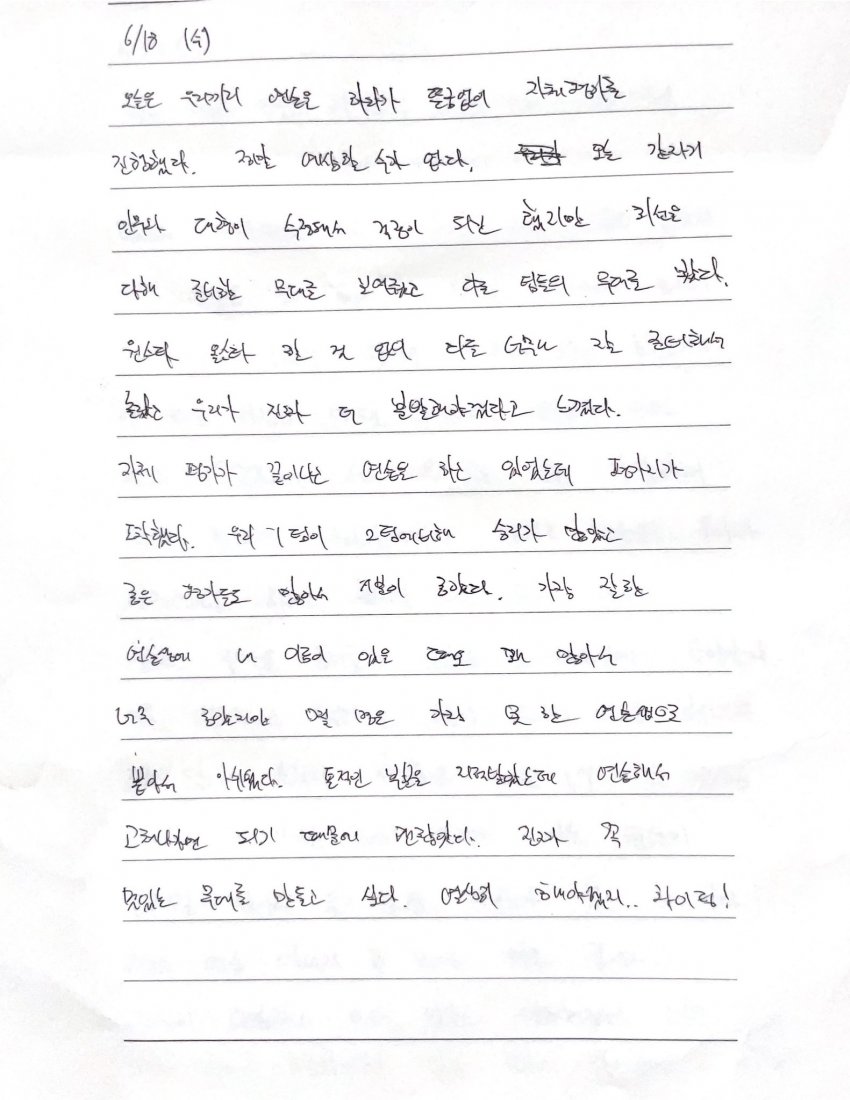 6/18 (수)
오늘은 우리끼리 연습을 하다가 뜬금없이 자체평가를
진행했다. 정말 예상할 수가 없다. 오늘 갑자기
안무와 대형이 수정돼서 걱정이 되긴 했지만 최선을
다해 준비한 무대를 보여줬고 다른 팀들의 무대를 봤다.
원스타 올스타 할 것 없이 다들 너무나 잘 준비해서
놀랐고 우리가 진짜 더 분발해야겠다고 느꼈다.
자체 평가가 끝이나는 연습을 하고 있었는데 평가지가
도착했다. 우리 1팀이 2팀에 비해 승리가 많았고
좋은 평가들도 많아서 기분이 좋았다. 가장 잘한
연습생에 내 이름이 있은 때도 꽤 많아서
너무 좋았지만 몇 명은 가장 못 한 연습생으로
뽑아서 아쉬웠다. 표정인 부분을 지적받았는데 연습해서
고쳐나가면 되기 때문에 괜찮았다. 진짜 꼭
멋있는 무대를 만들고 싶다. 열심히 해야겠지.. 화이팅!